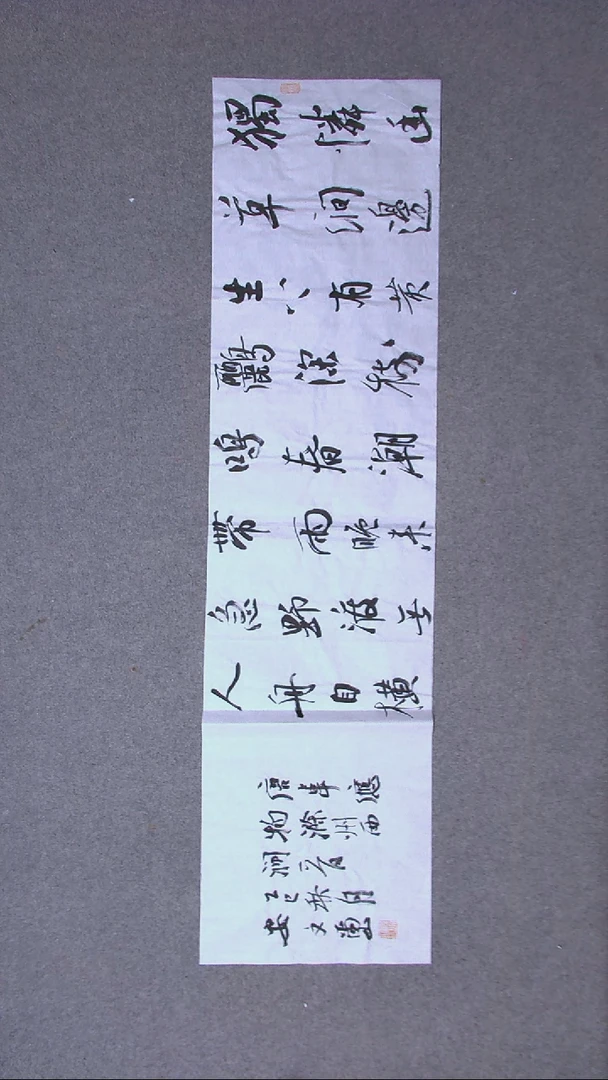 獨憐幽
草澗邊
生上有黄
鸝深樹
鳴春潮
帶雨晚来
急野渡無
人舟自橫
唐韋應
物滁州西
澗一首
乙巳秋月
安文